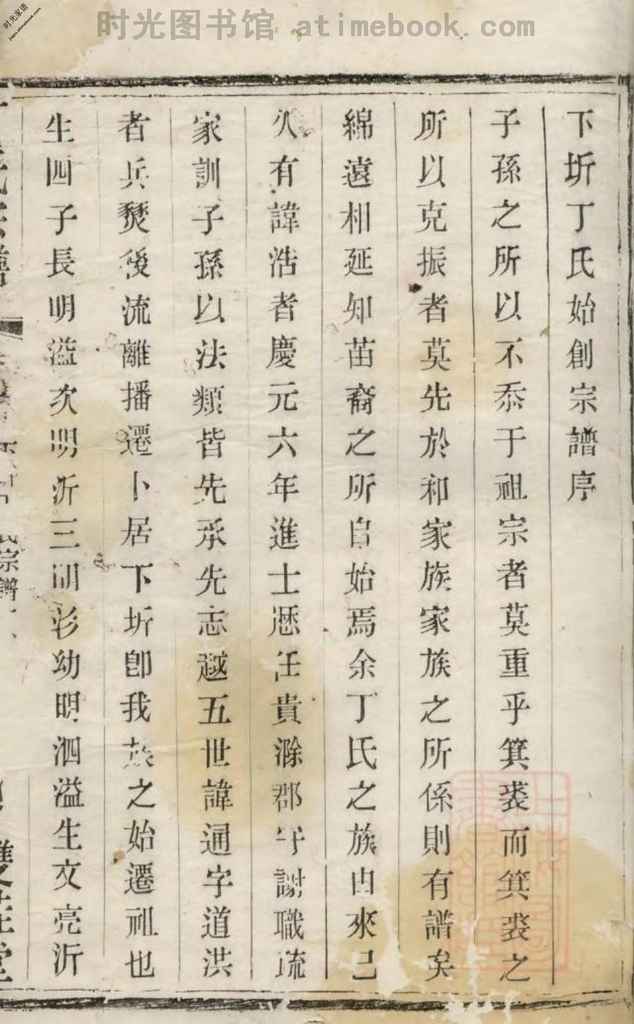 时光图书馆 atimebook.com
下圻丁氏始創宗譜序
子孫之所以不忝于祖宗者莫重乎箕裘而箕裘之
所以克振者莫先於和家族家族之所係則有譜矣
綿遠相延知苗裔之所自始焉余丁氏之族由來已
久有諱浩者慶元六年進士歷任貴滁郡守謝職疏
家訓子孫以法類皆先承先志越五世諱通字道洪
者兵燹後流離播遷卜居下圻卽我族之始遷祖也
生四子長明溢次明沂三明衫幼明泗溢生文亮沂
宗譜
雙桂堂